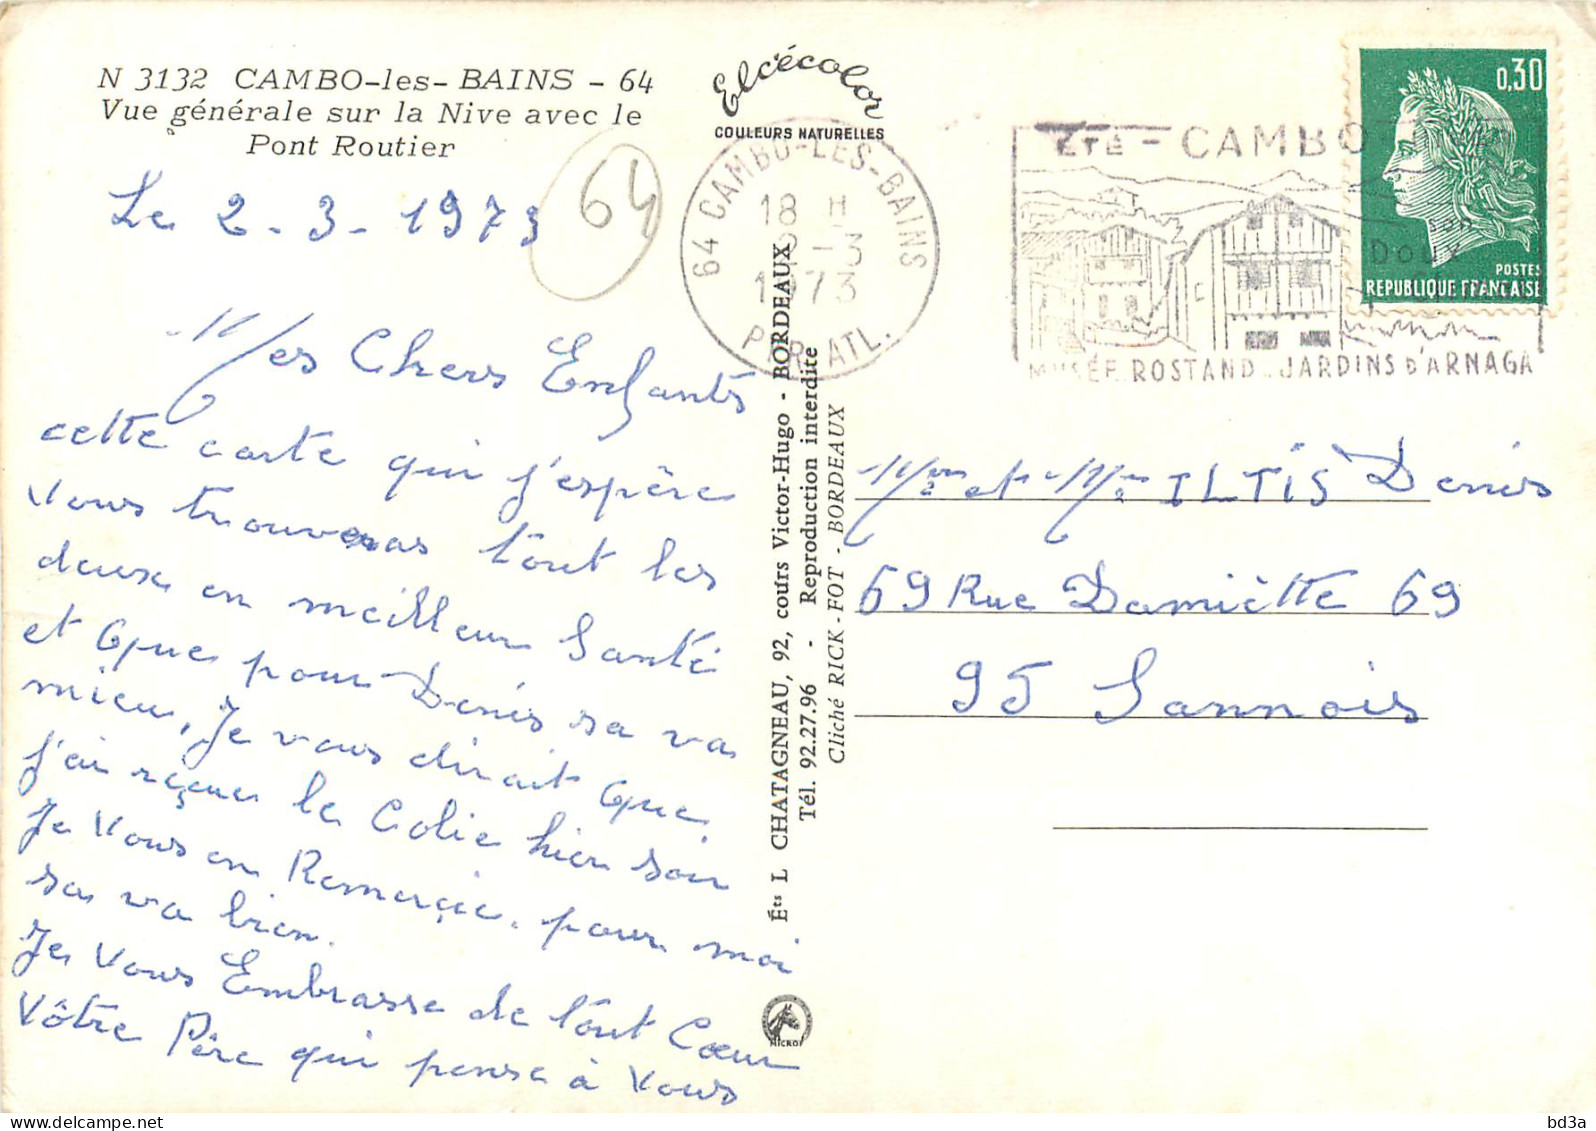 N 3132 CAMBO-les-BAINS - 64
Vue générale sur la Nive avec le
Pont Routier
Le 2-3-1973
64
Mes Chers Enfants
cette carte qui j'espère
Vous trouveras tout les
deux en meilleur Santé
et que pour Denis sa va
mieu, Je vous dirait que
j'ai reçue le Colie hier soir
Je Vous en Remerçie. pour moi
sa va bien.
Je Vous Embrasse de tout Cœur
Vôtre Père qui pense à Vous
Elcécolor
COULEURS NATURELLES
64 CAMBO-LES-BAINS
18 H
2-3
1973
PYR. ATL.
Éts L CHATAGNEAU, 92, cours Victor-Hugo - BORDEAUX
Tél. 92.27.96 - Reproduction interdite
Cliché RICK-FOT - BORDEAUX
MICROF
ÉTÉ - CAMBO
son
DOUX
MUSÉE ROSTAND . JARDINS D'ARNAGA
0,30
POSTES
REPUBLIQUE FRANCAISE
et ILTIS Denis
69 Rue Damiètte 69
95 Sannois
bd3a